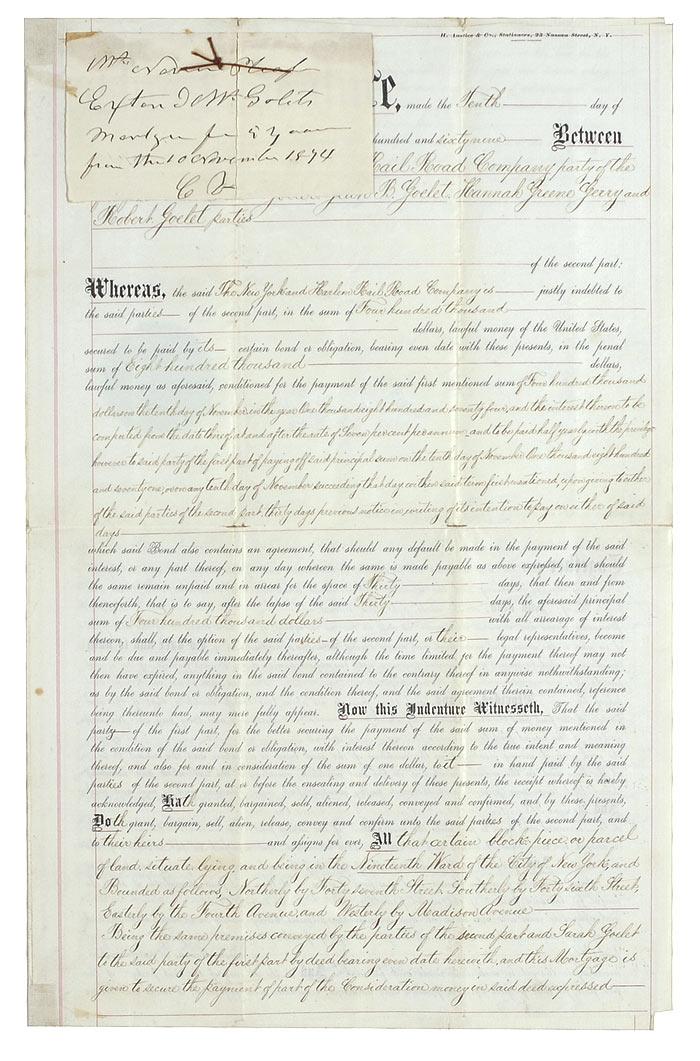 H. Justice & Co., Stationers, 23 Nassau Street, N. Y.
Mr
Exton & Mr Goelets
Mortgage for 5 years
from the 10 November 1874
C V
re, made the Tenth day of
hundred and sixty nine Between
Rail Road Company party of the
R. Goelet, Hannah Greene Gerry and
Robert Goelet parties
of the second part:
Whereas, the said The New York and Harlem Rail Road Company is justly indebted to
the said parties of the second part, in the sum of Four hundred thousand
dollars, lawful money of the United States,
secured to be paid by its certain bond or obligation, bearing even date with these presents, in the penal
sum of Eight hundred thousand dollars,
lawful money as aforesaid, conditioned for the payment of the said first mentioned sum of Four hundred thousand
dollars on the tenth day of November in the year One thousand eight hundred and seventy four, and the interest thereon to be
computed from the date thereof, at and after the rate of Seven per cent per annum, and to be paid half yearly with the privilege
however to said party of the first part of paying off said principal sum on the tenth day of November One thousand eight hundred
and seventy one, or on any tenth day of November succeeding that day within said term first mentioned, upon giving to either
of the said parties of the second part, thirty days previous notice in writing of its intention to pay on either of said
days
which said Bond also contains an agreement, that should any default be made in the payment of the said
interest, or any part thereof, on any day whereon the same is made payable as above expressed, and should
the same remain unpaid and in arrear for the space of Thirty days, that then and from
thenceforth, that is to say, after the lapse of the said Thirty days, the aforesaid principal
sum of Four hundred thousand dollars with all arrearage of interest
thereon, shall, at the option of the said parties of the second part, or their legal representatives, become
and be due and payable immediately thereafter, although the time limited for the payment thereof may not
then have expired, anything in the said bond contained to the contrary thereof in anywise nothwithstanding;
as by the said bond or obligation, and the condition thereof, and the said agreement therein contained, reference
being thereunto had, may more fully appear. Now this Indenture Witnesseth, That the said
party of the first part, for the better securing the payment of the said sum of money mentioned in
the condition of the said bond or obligation, with interest thereon according to the true intent and meaning
thereof, and also for and in consideration of the sum of one dollar, to it in hand paid by the said
parties of the second part, at or before the ensealing and delivery of these presents, the receipt whereof is hereby
acknowledged, Hath granted, bargained, sold, aliened, released, conveyed and confirmed, and by these presents,
Doth grant, bargain, sell, alien, release, convey and confirm unto the said parties of the second part, and
to their heirs and assigns for ever, All that certain block, piece, or parcel
of land, situate, lying, and being in the Nineteenth Ward of the City of New York, and
Bounded as follows, Northerly by Forty seventh Street, Southerly by Forty sixth Street,
Easterly by the Fourth Avenue, and Westerly by Madison Avenue
Being the same premises conveyed by the parties of the second part and Sarah Goelet
to the said party of the first part by deed bearing even date herewith, and this Mortgage is
given to secure the payment of part of the Consideration money in said deed expressed